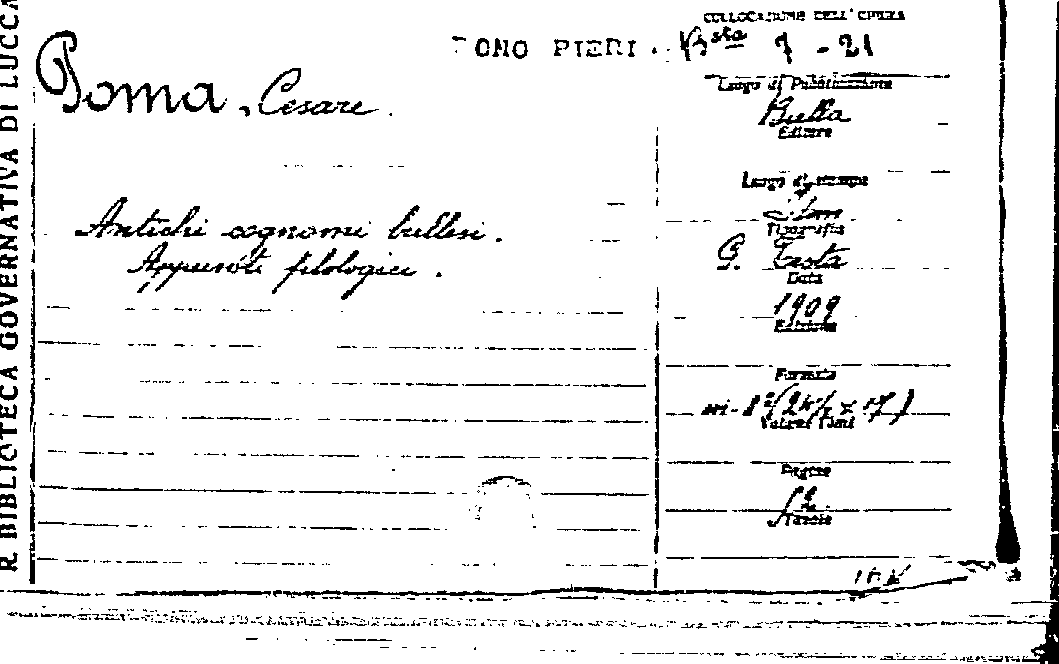 R. BIBLIOTECA GOVERNATIVA DI LUCCA
COLLOCAZIONE DELL'OPERA
DONO PIERI. Bsta 7 - 21
Poma, Cesare.
Antichi cognomi biellesi.
Appunti filologici.
Luogo di Pubblicazione
Biella
Editore
Luogo di stampa
Tipografia
G. Testa
Data
1909
Edizione
Formato
in-8°
Volumi Tomi
Pagine
Tavole